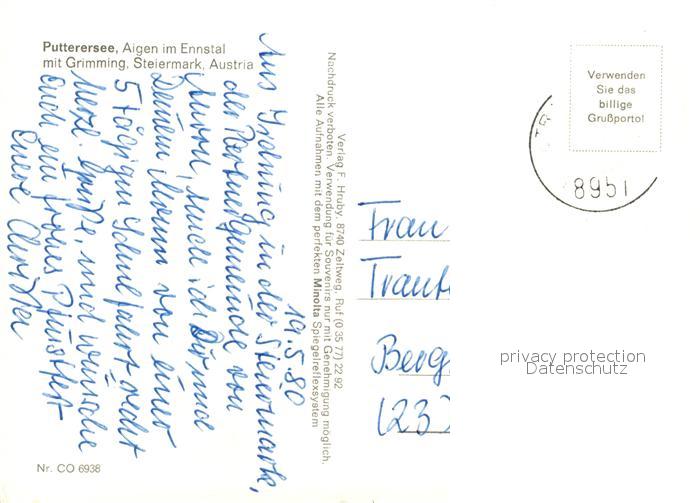 Putterersee, Aigen im Ennstal
mit Grimming, Steiermark, Austria
19.5.80
Aus Irdning in der Steiermark,
der Partnergemeinde von
Murr, sende ich Dir und
Deinem Mann von einer
5 tägigen Schulfahrt recht
herzl. Grüße, und wünsche
euch ein frohes Pfingstfest
Eure
Nr. CO 6938
Verlag F. Hruby, 8740 Zeltweg, Ruf (0 35 77) 22 92
Nachdruck verboten. Verwendung für Souvenirs nur mit Genehmigung möglich.
Alle Aufnahmen mit dem perfekten Minolta Spiegelreflexsystem
Verwenden
Sie das
billige
Grußporto!
8951
Frau
Traut
Berg
(233
privacy protection
Datenschutz